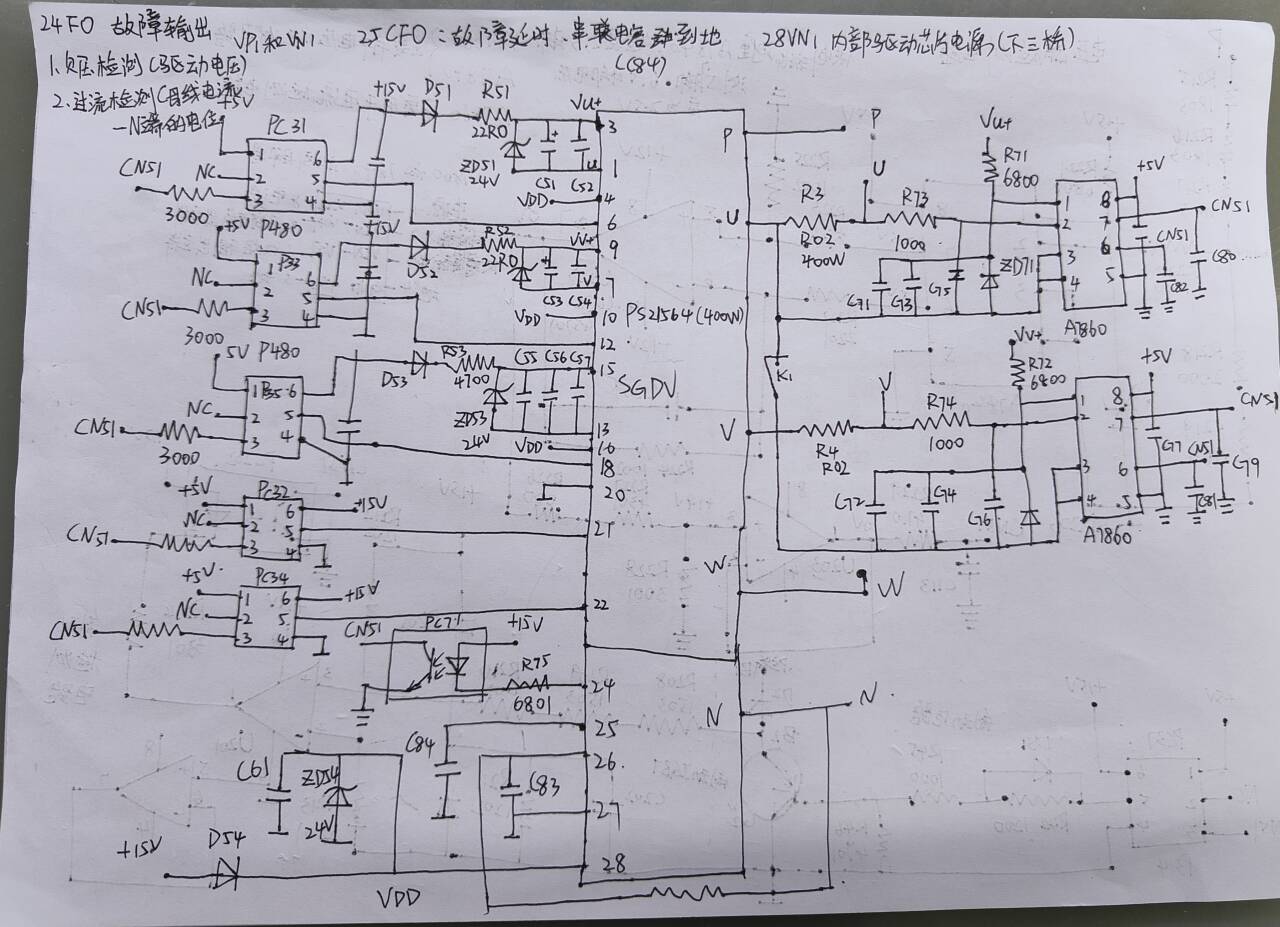 24FO 故障输出 VP1和VN1 25CFO:故障延时,串联电容到地 28VN1 内部驱动芯片电源(下三桥)
(C84)
1.欠压检测(驱动电压)
2.过流检测(母线电流
-N端的电位
+5V
PC31
1
2
3
6
5
4
CN51
NC
3000
+15V
D51
R51
22R0
ZD51
24V
C51
C52
Vu+
u
VDD
+5V
P480
P33
1
2
3
6
5
4
NC
CN51
3000
+15V
D52
R52
22R0
C53
C54
VV+
V
VDD
5V
P480
P35
1
2
3
6
5
4
NC
CN51
3000
D53
R53
4700
ZD53
24V
C55
C56
C57
VDD
+5V
PC32
1
2
3
6
5
4
+15V
NC
CN51
+5V
PC34
1
2
3
6
5
4
+15V
NC
CN51
CN51
PC71
+15V
R75
6801
C61
ZD54
24V
C84
C83
+15V
D54
VDD
3
1
4
6
9
7
10
12
15
13
16
18
20
21
22
24
25
26
27
28
PS21564(400W)
SGDV
P
U
V
W
N
P
U
R3
R02
400W
R73
1000
Vu+
R71
6800
C71
C73
C75
ZD71
1
2
3
4
8
7
6
5
A7860
+5V
CN51
CN51
C80
C82
K1
V
R4
R02
R74
1000
Vv+
R72
6800
C72
C74
C76
1
2
3
4
8
7
6
5
A7860
+5V
CN51
C77
CN51
C79
C81
W
N